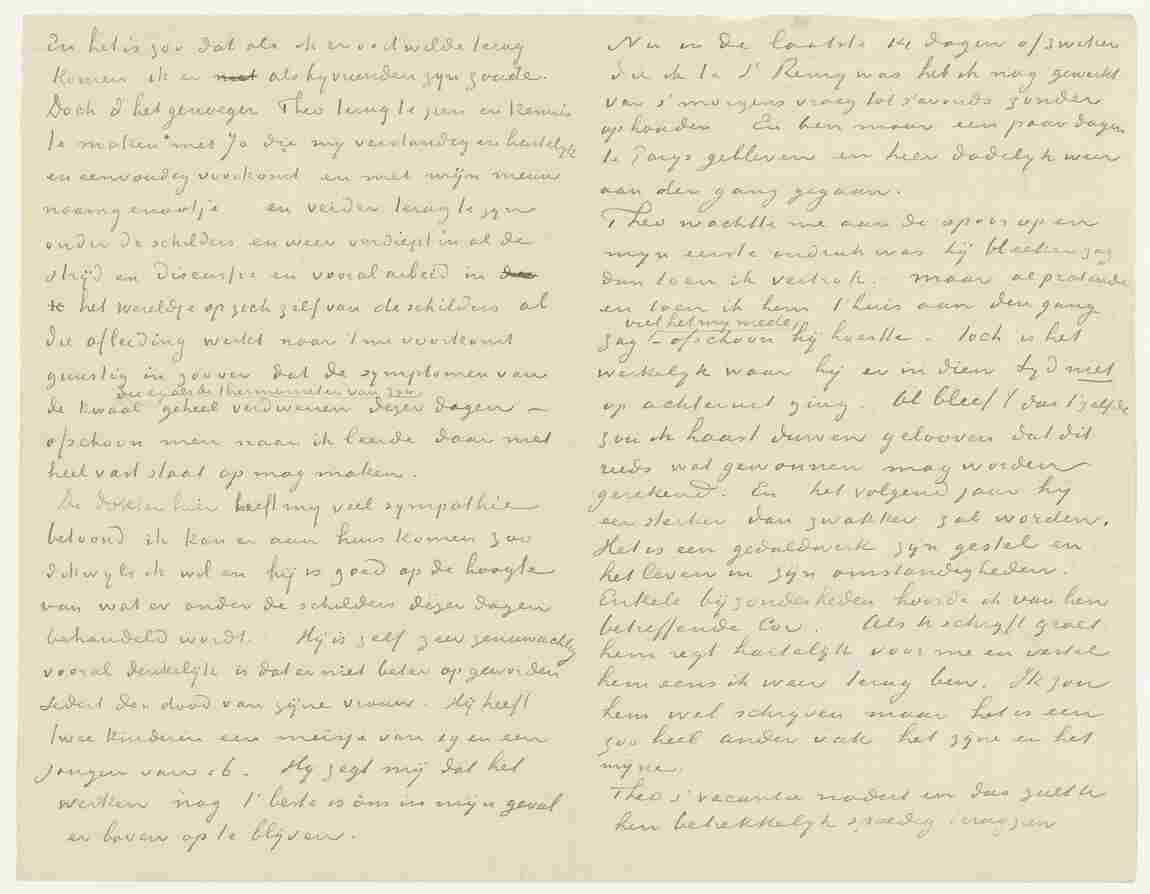 En het is zoo dat als ik er ooit wilde terug
komen ik er niet als bij vrienden zijn zoude.
Doch d' het genoegen Theo terug te zien en kennis
te maken met Jo die my verstandig en hartelyk
en eenvoudig voorkomt en met mijn nieuw
naamgenootje en verder terug te zyn
onder de schilders en weer verdiept in al de
strijd en discussie en vooral arbeid in den
te het wereldje op zich zelf van de schilders al
die afleiding werkt naar 't me voorkomt
gunstig in zoover dat de symptomen van
de kwaal die zyn als de thermometer van zoo geheel verdwenen dezer dagen –
ofschoon men naar ik leerde daar niet
heel vast staat op mag maken.
De dokter hier heeft my veel sympathie
betoond ik kan er aan huis komen zoo
dikwyls ik wil en hij is goed op de hoogte
van wat er onder de schilders dezer dagen
behandeld wordt. Hij is zelf zeer zenuwachtig
vooral denkelijk is dat er niet beter op geworden
sedert den dood van zijne vrouw. Hij heeft
twee kinderen een meisje van 19 en een
jongen van 16. Hy zegt mij dat het
werken nog 't beste is om in mijn geval
er boven op te blijven.
Nu in de laatste 14 dagen of 3 weken
die ik te S^t Remy was heb ik nog gewerkt
van s'morgens vroeg tot s'avonds zonder
ophouden En ben maar een paar dagen
te Parys gebleven en hier dadelyk weer
aan den gang gegaan.
Theo wachtte me aan de spoor op en
myn eerste indruk was hij bleeker zag
dan toen ik vertrok. maar al pratende
en toen ik hem t'huis aan den gang
zag – viel het my mede ofschoon hij hoestte. Toch is het
werkelyk waar hij er in dien tyd niet
op achteruit ging. Al bleef 't dus 't zelfde
zou ik haast durven gelooven dat dit
reeds wat gewonnen mag worden
gerekend. En het volgend jaar hij
eer sterker dan zwakker zal worden.
Het is een geduldwerk zijn gestel en
het leven in zijn omstandigheden.
Enkele bijzonderheden hoorde ik van hen
betreffende Cor. Als ge schryft groet
hem regt hartelijk voor me en vertel
hem eens ik weer terug ben. Ik zou
hem wel schrijven maar het is een
zoo heel ander vak het zyne en het
myne.
Theo s'vacantie nadert en dus zult U
hen betrekkelyk spoedig terugzien